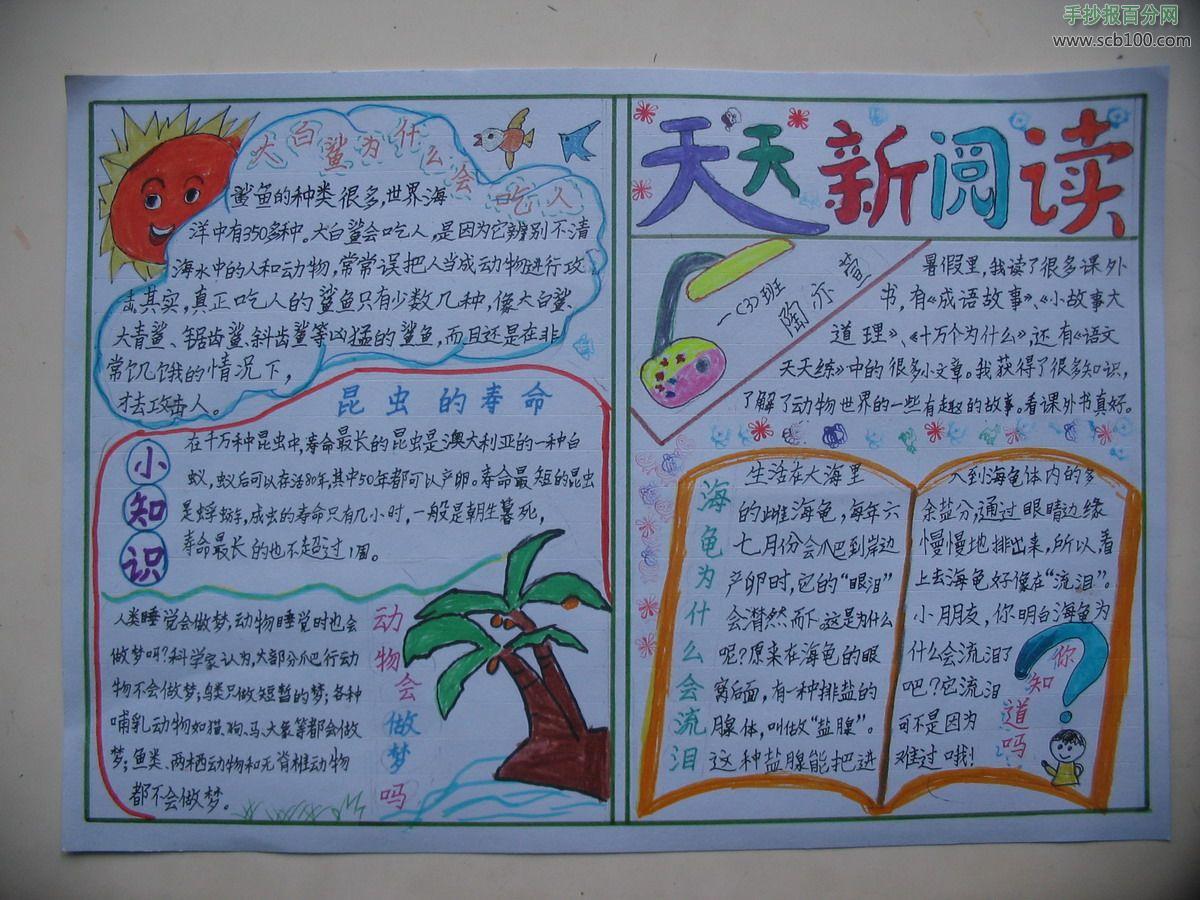 手抄报百分网
www.scb100.com
大白鲨为什么会吃人
鲨鱼的种类很多,世界海
洋中有350多种。大白鲨会吃人,是因为它辨别不清
海水中的人和动物,常常误把人当成动物进行攻
击,其实,真正吃人的鲨鱼只有少数几种,像大白鲨、
大青鲨、锯齿鲨、斜齿鲨等凶猛的鲨鱼,而且还是在非
常饥饿的情况下,
才去攻击人。
昆虫的寿命
小知识
在千万种昆虫中,寿命最长的昆虫是澳大利亚的一种白
蚁,蚁后可以存活80年,其中50年都可以产卵。寿命最短的昆虫
是蜉蝣,成虫的寿命只有几小时,一般是朝生暮死,
寿命最长的也不超过1周。
动物会做梦吗
人类睡觉会做梦,动物睡觉时也会
做梦吗?科学家认为,大部分爬行动
物不会做梦;鸟类只做短暂的梦;各种
哺乳动物如猫、狗、马、大象等都会做
梦;鱼类、两栖动物和无脊椎动物
都不会做梦。
天天新阅读
一(3)班
陶亦萱
暑假里,我读了很多课外
书,有《成语故事》、《小故事大
道理》、《十万个为什么》,还有《语文
天天练》中的很多小文章。我获得了很多知识,
了解了动物世界的一些有趣的故事。看课外书真好。
海龟为什么会流泪
生活在大海里
的雌海龟,每年六
七月份会爬到岸边
产卵时,它的“眼泪”
会潸然而下。这是为什么
呢?原来在海龟的眼
窝后面,有一种排盐的
腺体,叫做“盐腺”。
这种盐腺能把进
入到海龟体内的多
余盐分,通过眼睛边缘
慢慢地排出来,所以看
上去海龟好像在“流泪”。
小朋友,你明白海龟为
什么会流泪了
吧?它流泪
可不是因为
难过哦!
你知道吗